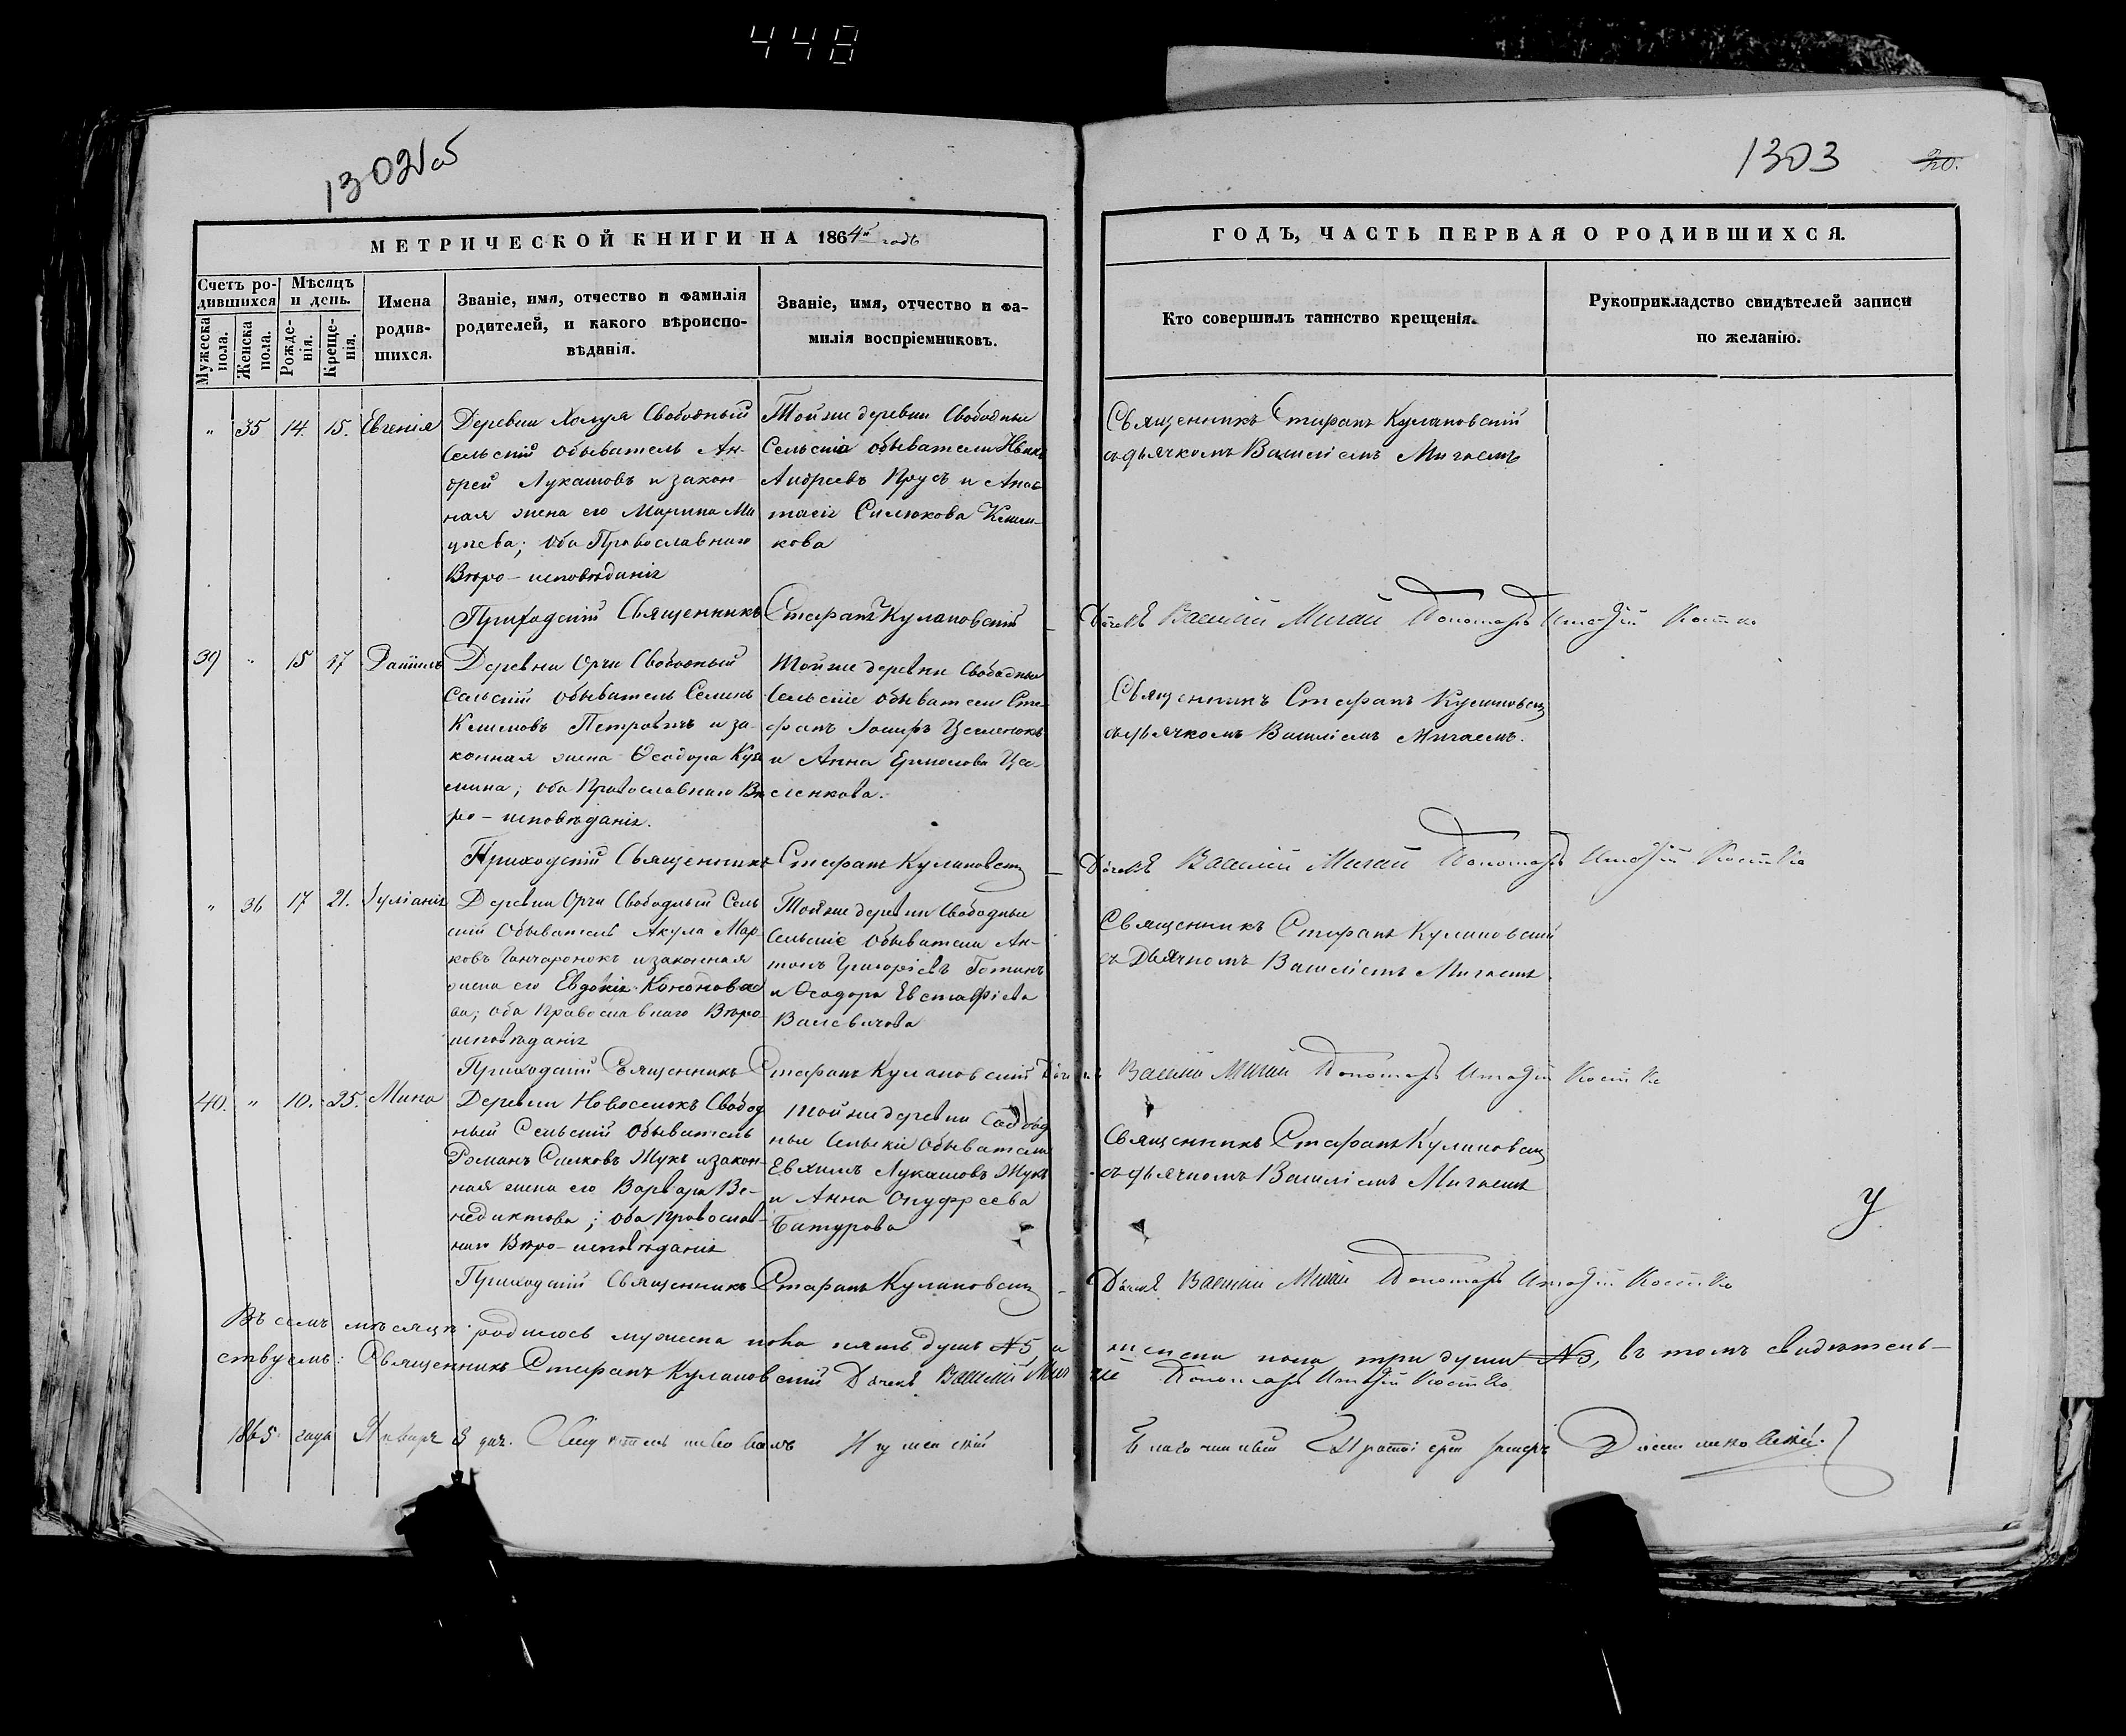 448
1302 об
1303
20.
МЕТРИЧЕСКОЙ КНИГИ НА 1864й годъ
ГОДЪ, ЧАСТЬ ПЕРВАЯ О РОДИВШИХСЯ.
Счетъ родившихся
Мужеска пола.
Женска пола.
Мѣсяцъ и день.
Рожденія.
Крещенія.
Имена родившихся.
Званіе, имя, отчество и фамилія
родителей, и какого вѣроиспо-
вѣданія.
Званіе, имя, отчество и фа-
милія воспріемниковъ.
Кто совершилъ таинство крещенія.
Рукоприкладство свидѣтелей записи
по желанію.
" 35 14. 15. Евгенія
Деревни Холуя Свободный
Сельскій обыватель Ан-
дрей Лукашовъ и закон-
ная жена его Марина
оба Православнаго
Вѣро-исповѣданія
Тойже деревни Свободные
Сельскіе обыватели
Андреевъ Прусъ и Анас-
тасія
Священникъ Стефанъ Кулаковскій
съ дьячкомъ Василіемъ Мигаемъ
Приходскій Священникъ Стефанъ Кулаковскій – Дьячекъ Василій Мигай Пономарь Костко
39 " 15 17 Даніилъ
Деревни Орчи Свободный
Сельскій обыватель Семенъ
Климовъ Петровичъ и за-
конная жена Ѳеодора Кузь
мина; оба Православнаго Вѣ
ро-исповѣданія.
Тойже деревни Свободные
Сельскіе обыватели Сте-
фанъ Іосифъ
и Анна Ермолова
Священникъ Стефанъ Кулаковскій
съ дьячкомъ Василіемъ Мигаемъ.
Приходскій Священникъ Стефанъ Кулаковскій – Дьячекъ Василій Мигай Пономарь Костко
" 36 17 21. Іуліанія
Деревни Орчи Свободный Сель
скій Обыватель Акула Мар
ковъ Ганчаронокъ и законная
жена его Евдокія Кононова
оба православнаго Вѣро-
исповѣданія
Тойже деревни Свободные
Сельскіе обыватели Ан-
тонъ Григоріевъ
и Ѳеодора Евстафіева
Священникъ Стефанъ Кулаковскій
съ Дьячкомъ Василіемъ Мигаемъ.
Приходскій Священникъ Стефанъ Кулаковскій Дьячекъ Василій Мигай Пономарь Костко
40. " 10. 25. Мина
Деревни Новоселокъ Свобод
ный Сельскій обыватель
Романъ Силковъ Жукъ и закон-
ная жена его Варвара Ве-
недиктова; оба православ-
наго Вѣро-исповѣданія
Тойже деревни Свобод
ные Сельскіе Обыватели
Евхимъ Лукашовъ Жукъ
и Анна Онуфреева
Батурова
Священникъ Стефанъ Кулаковскій
съ дьячкомъ Василіемъ Мигаемъ
Приходскій Священникъ Стефанъ Кулаковскій – Дьячекъ Василій Мигай Пономарь Костко
Въ семъ мѣсяцѣ родилось мужеска пола пять душъ №5, а женска пола три души №3, въ томъ свидѣтель-
ствуемъ: Священникъ Стефанъ Кулаковскій Дьячекъ Василій Мигай Пономарь Костко.
1865 года Января 8 дня. Свидѣтельствовалъ Игуменскій Благочинный